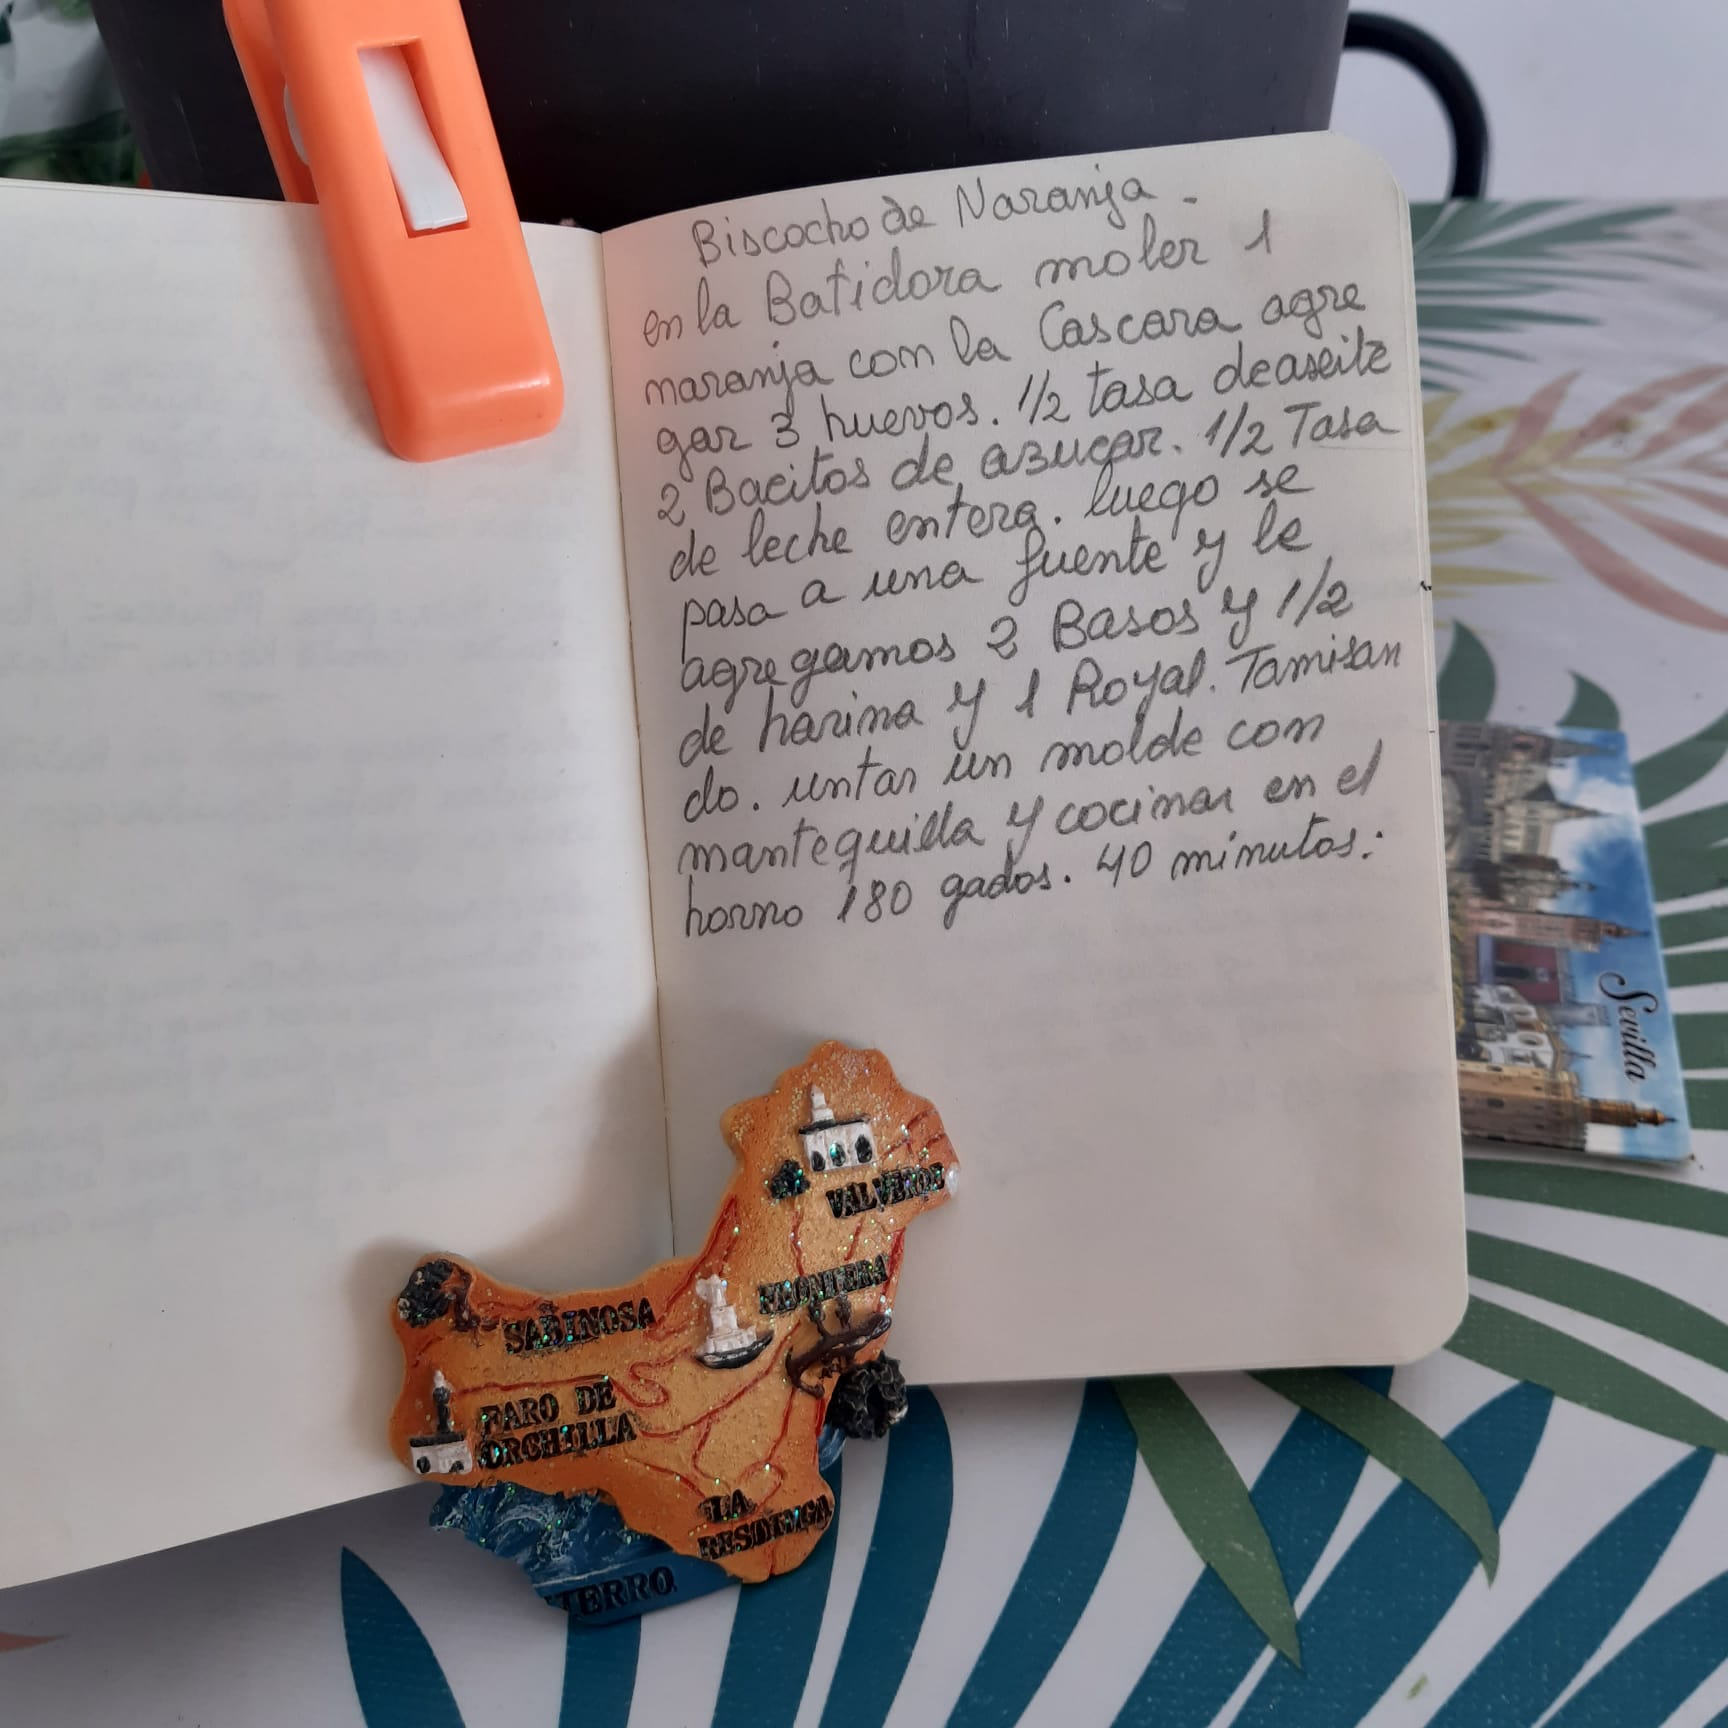 Biscocho de Naranja.
en la Batidora moler 1
naranja con la Cascara agre
gar 3 huevos. 1/2 tasa de aseite
2 Bacitos de azucar. 1/2 Tasa
de leche entera. luego se
pasa a una fuente y le
agregamos 2 Basos y 1/2
de harina y 1 Royal. Tamisan
do. untar un molde con
mantequilla y cocinar en el
horno 180 gados. 40 minutos.
Sevilla
VALVERDE
FRONTERA
SABINOSA
FARO DE
ORCHILLA
LA
RESTINGA
IERRO